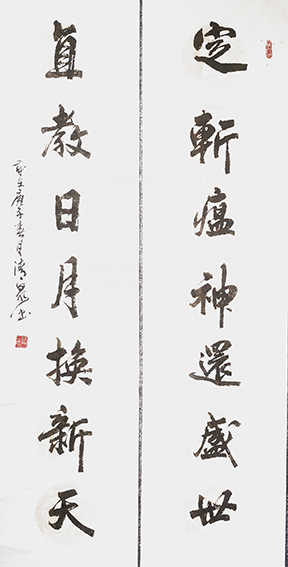 定斬瘟神還盛世
直教日月換新天
歲在庚子春月